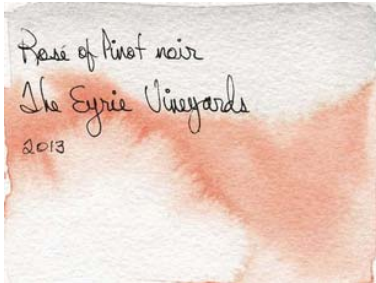 Rosé of Pinot noir
The Eyrie Vineyards
2013